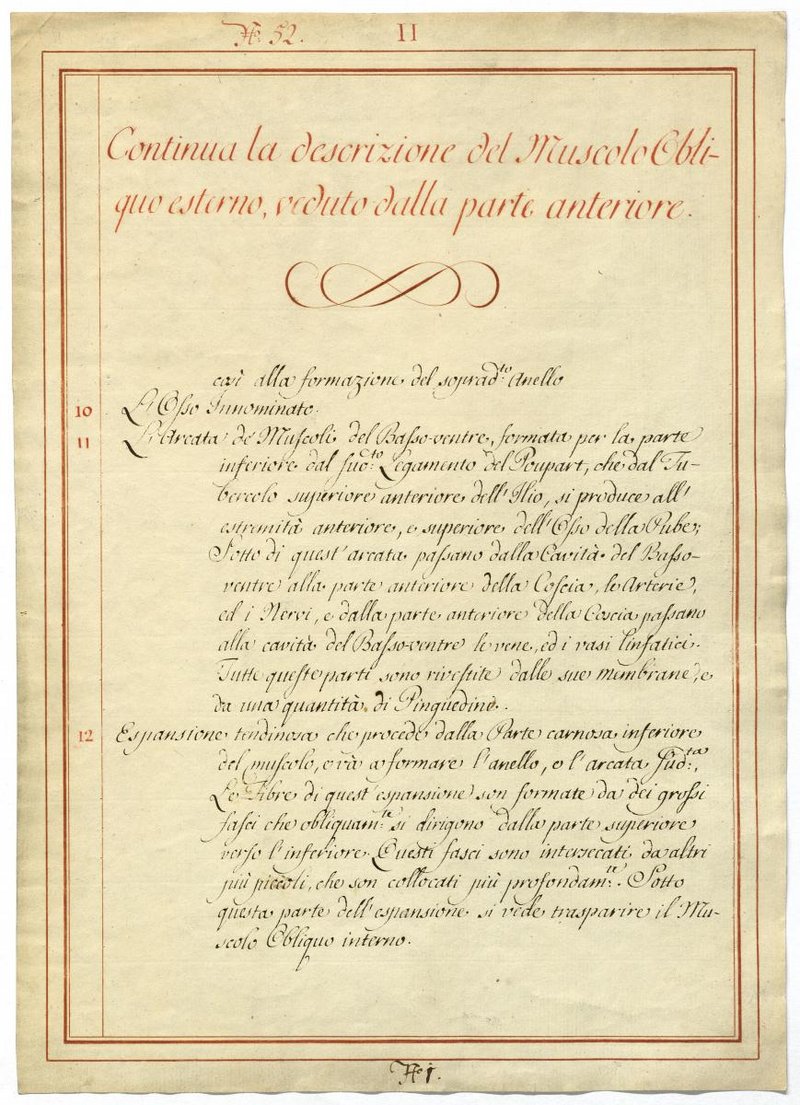 N.º 52.
II
Continua la descrizione del Muscolo Obli-
quo esterno, veduto dalla parte anteriore.
così alla formazione del soprad.to Anello
10 L'Osso Innominato.
11 L'Arcata de' Muscoli del Basso-ventre, formata per la parte
inferiore dal sud.to Legamento del Poupart, che dal Tu-
bercolo superiore anteriore dell'Ilio, si produce all'
estremità anteriore, e superiore dell'Osso della Pube;
Sotto di quest'arcata passano dalla Cavità del Basso-
ventre alla parte anteriore della Coscia, le Arterie,
ed i Nervi, e dalla parte anteriore della Coscia passano
alla cavità del Basso-ventre le vene, ed i vasi linfatici.
Tutte queste parti sono rivestite dalle sue membrane, e
da una quantità di Pinguedine.
12 Espansione tendinosa che procede dalla Parte carnosa inferiore
del muscolo, e và a formare l'anello, e l'arcata sud.ta,
Le Fibre di quest'espansione son formate da dei grossi
fasci che obliquam.te si dirigono dalla parte superiore
verso l'inferiore. Questi fasci sono intersecati da altri
più piccoli, che son collocati più profondam.te. Sotto
questa parte dell'espansione si vede trasparire il Mu-
scolo Obliquo interno.
N.º 1.